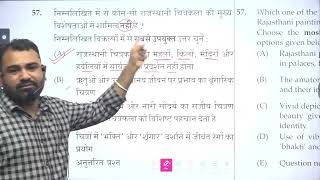 57. निम्नलिखित में से कौन-सी राजस्थानी चित्रकला की मुख्य
विशेषताओं में शामिल नहीं है ?
निम्नलिखित विकल्पों में से सबसे उपयुक्त उत्तर चुनें :
(A) राजस्थानी चित्रकला महलों, किलों, मंदिरों और
हवेलियों में प्रदर्शन नहीं होता
(B) ऋतुओं और जीवन पर प्रभाव का शृंगारिक
चित्रण
और नारी सौंदर्य का सजीव चित्रण
चित्रकला को विशिष्ट पहचान देता है
चित्रों में 'भक्ति' और 'शृंगार' दर्शाने में जीवंत रंगों का
प्रयोग
अनुत्तरित प्रश्न
57. Which one of the
Rajasthani painting
Choose the most
options given below
(A) In Rajasthani
display
temples and
(B) The amatory
and their im
(C) Vivid depic
beauty give
identity
(D) Use of vib
'bhakti' and
(E) Question no